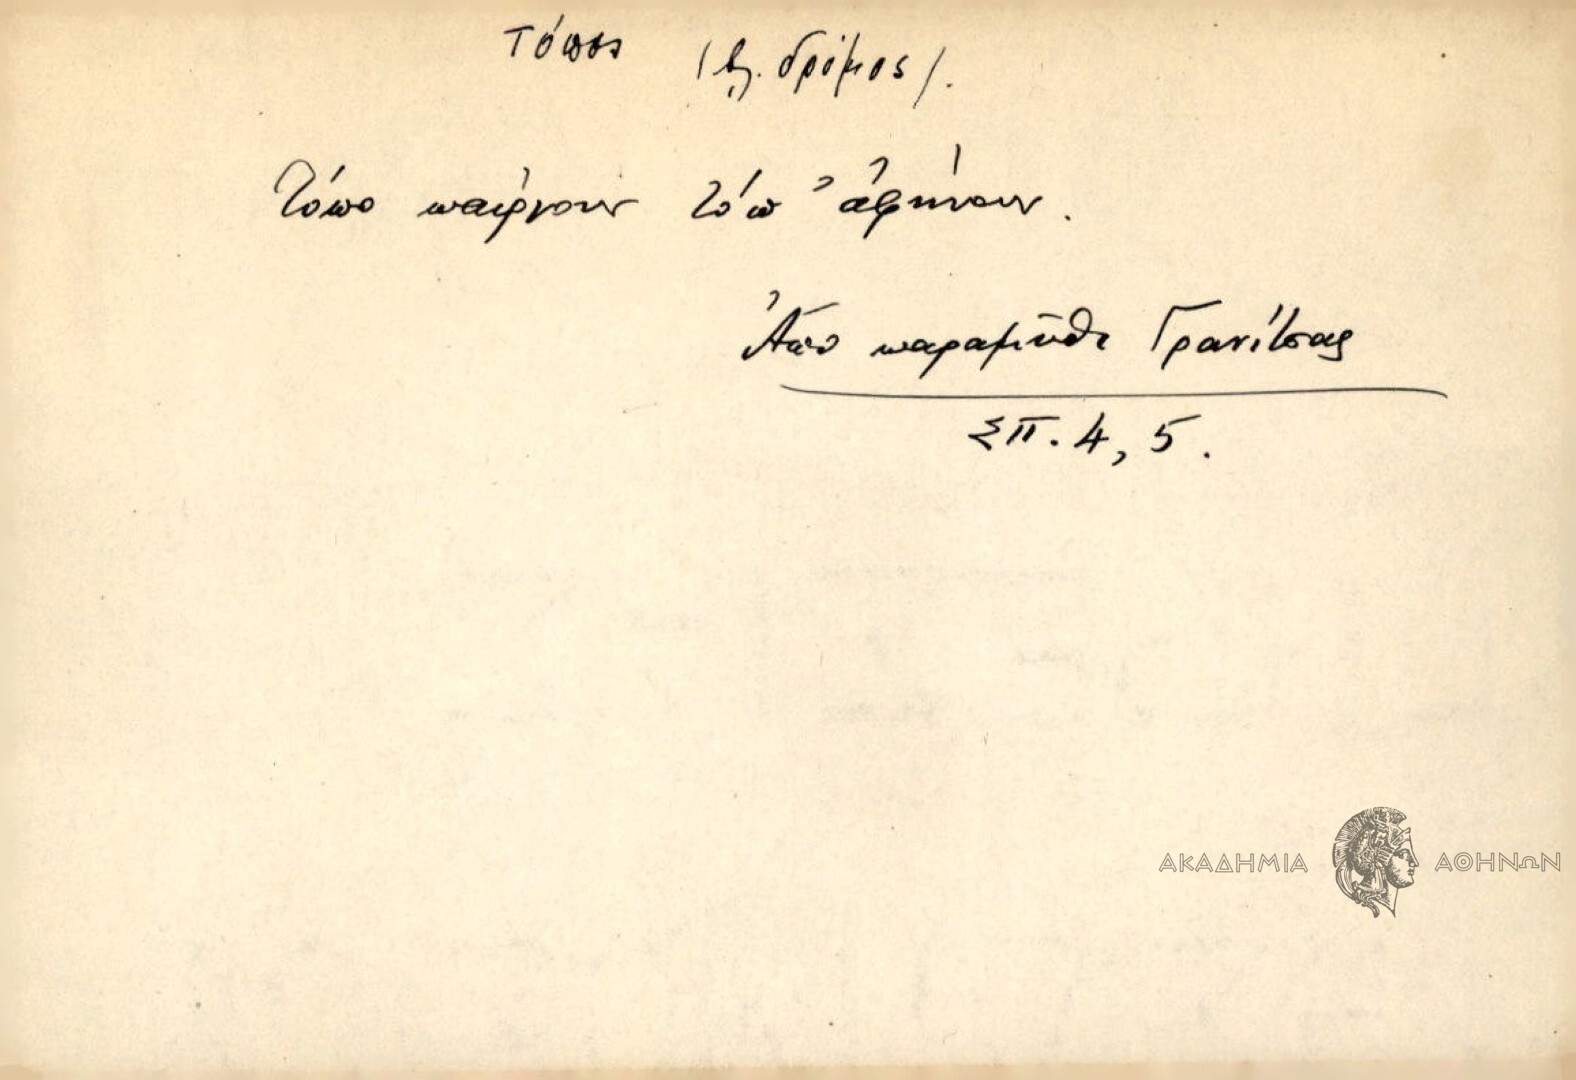 Τόπος (βλ. δρόμος).
Τόπο παίρνουν τόπ' ἀφήνουν.
Ἀπὸ παραμύθι Γρανίτσας
ΣΠ. 4, 5.
ΑΚΑΔΗΜΙΑ ΑΘΗΝΩΝ